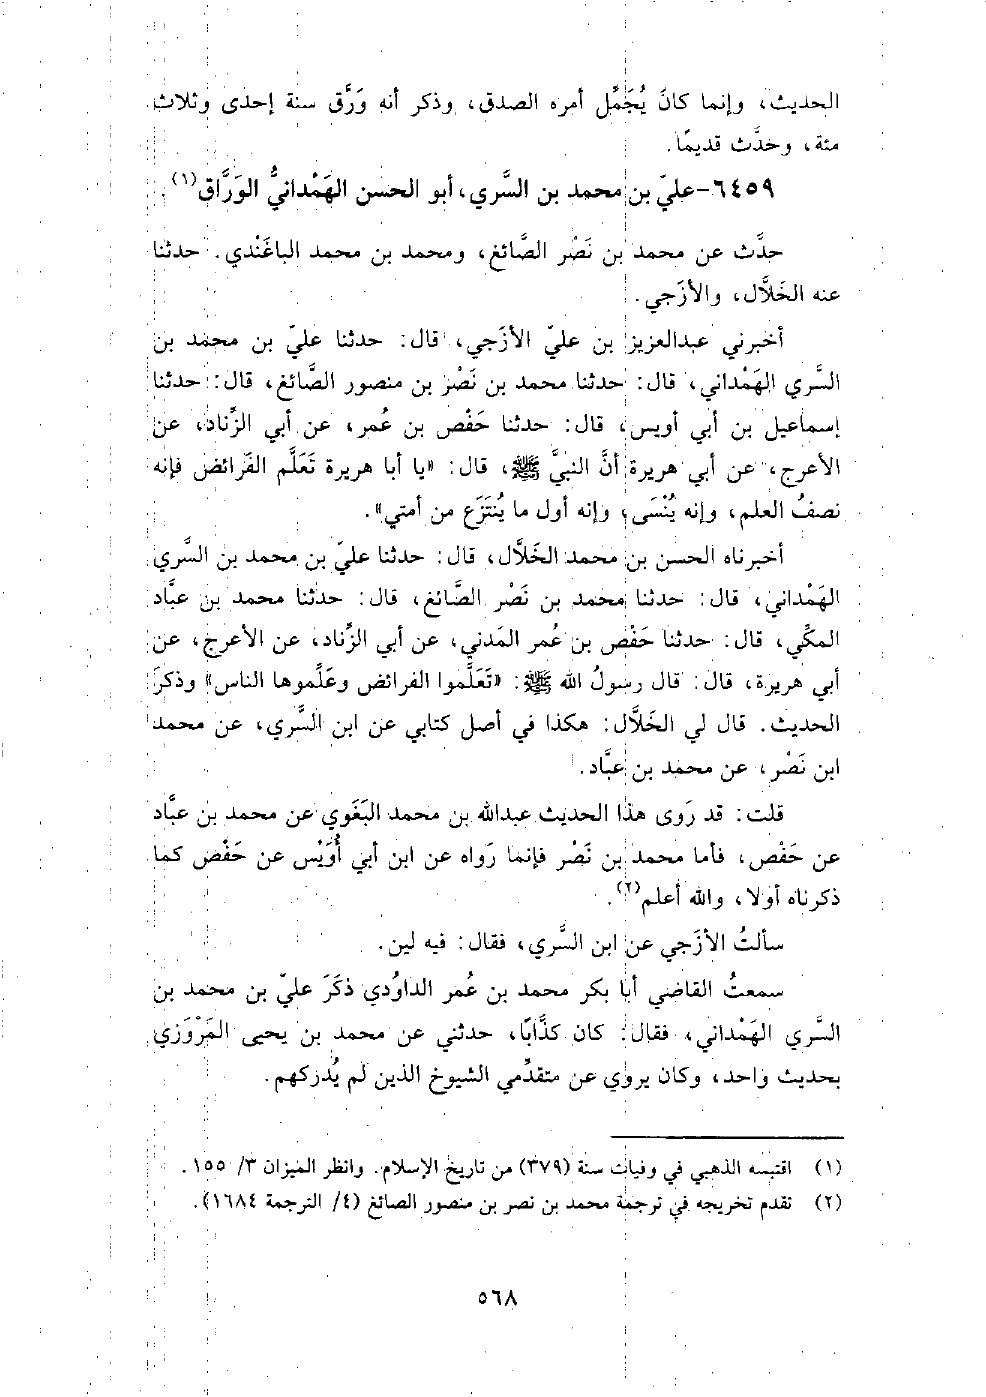 الحديث، وإنما كانَ يُجَمِّل أمره الصدق، وذكر أنه وَرَّق سنة إحدى وثلاث
مئة، وحدَّث قديمًا.
٦٤٥٩-عليّ بن محمد بن السَّري، أبو الحسن الهَمْدانيُّ الوَرَّاق(١).
حدَّث عن محمد بن نَصْر الصَّائغ، ومحمد بن محمد الباغَندي. حدثنا
عنه الخَلَّال، والأزَجي.
أخبرني عبدالعزيز بن عليّ الأزَجي، قال: حدثنا عليّ بن محمد بن
السَّري الهَمْداني، قال: حدثنا محمد بن نَصْر بن منصور الصَّائغ، قال: حدثنا
إسماعيل بن أبي أويس، قال: حدثنا حَفْص بن عُمر، عن أبي الزِّناد، عن
الأعرج، عن أبي هريرة أنَّ النبيَّ ﷺ، قال: «يا أبا هريرة تَعَلَّم الفَرائض فإنه
نصفُ العلم، وإنه يُنْسَى، وإنه أول ما يُنتَزَع من أمتي».
أخبرناه الحسن بن محمد الخَلَّال، قال: حدثنا عليّ بن محمد بن السَّري
الهَمْداني، قال: حدثنا محمد بن نَصْر الصَّائغ، قال: حدثنا محمد بن عبَّاد
المكِّي، قال: حدثنا حَفْص بن عُمر المَدني، عن أبي الزِّناد، عن الأعرج، عن
أبي هريرة، قال: قال رسولُ الله ﷺ: «تَعَلَّموا الفرائض وعَلِّموها الناس» وذكرَ
الحديث. قال لي الخَلَّال: هكذا في أصل كتابي عن ابن السَّري، عن محمد
ابن نَصْر، عن محمد بن عبَّاد.
قلت: قد رَوى هذا الحديث عبدالله بن محمد البَغَوي عن محمد بن عبَّاد
عن حَفْص، فأما محمد بن نَصْر فإنما رَواه عن ابن أبي أُوَيْس عن حَفْص كما
ذكرناه أولا، والله أعلم(٢).
سألتُ الأزَجي عن ابن السَّري، فقال: فيه لين.
سمعتُ القاضي أبا بكر محمد بن عُمر الداوُدي ذكَرَ عليّ بن محمد بن
السَّري الهَمْداني، فقال: كان كذَّابًا، حدثني عن محمد بن يحيى المَرْوَزي
بحديث واحد، وكان يروي عن متقدِّمي الشيوخ الذين لم يُدركهم.
(١) اقتبسه الذهبي في وفيات سنة (٣٧٩) من تاريخ الإسلام. وانظر الميزان ٣/ ١٥٥.
(٢) تقدم تخريجه في ترجمة محمد بن نصر بن منصور الصائغ (٤/ الترجمة ١٦٨٤).
٥٦٨